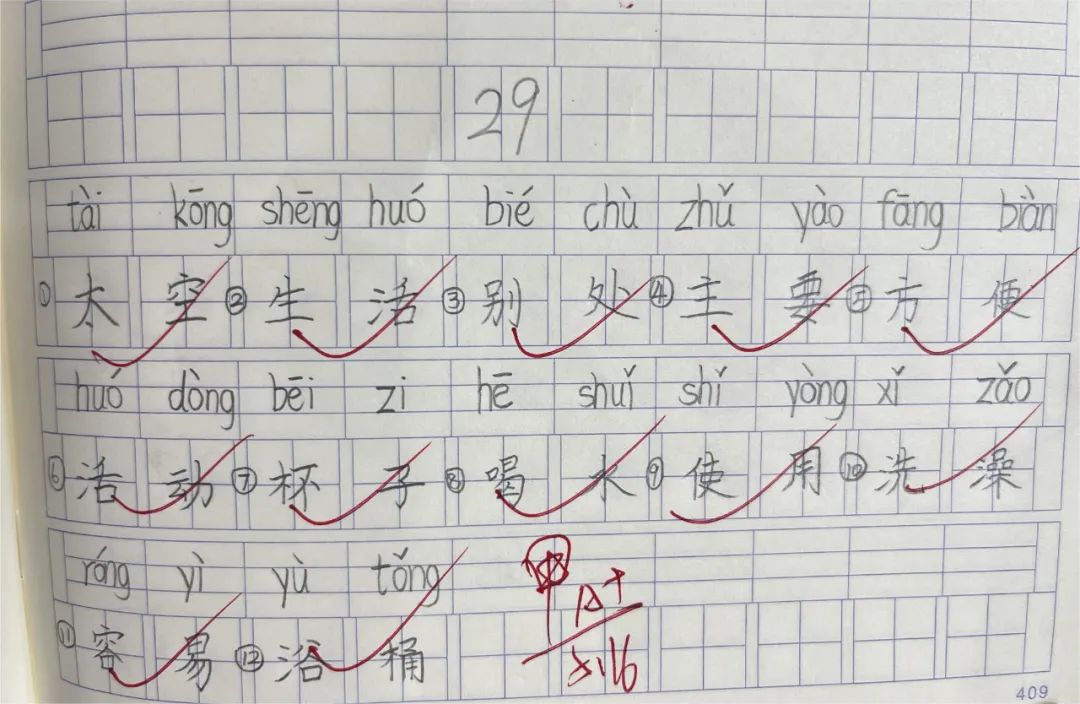 29
tài kōng shēng huó bié chù zhǔ yào fāng biàn
①太空②生活③别处④主要⑤方便
huó dòng bēi zi hē shuǐ shǐ yòng xǐ zǎo
⑥活动⑦杯子⑧喝水⑨使用⑩洗澡
róng yì yù tǒng
⑪容易⑫浴桶
A+
409